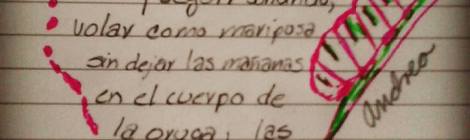 volar como mariposa
sin dejar las mañanas
en el cuerpo de
la oruga, las
Andrea